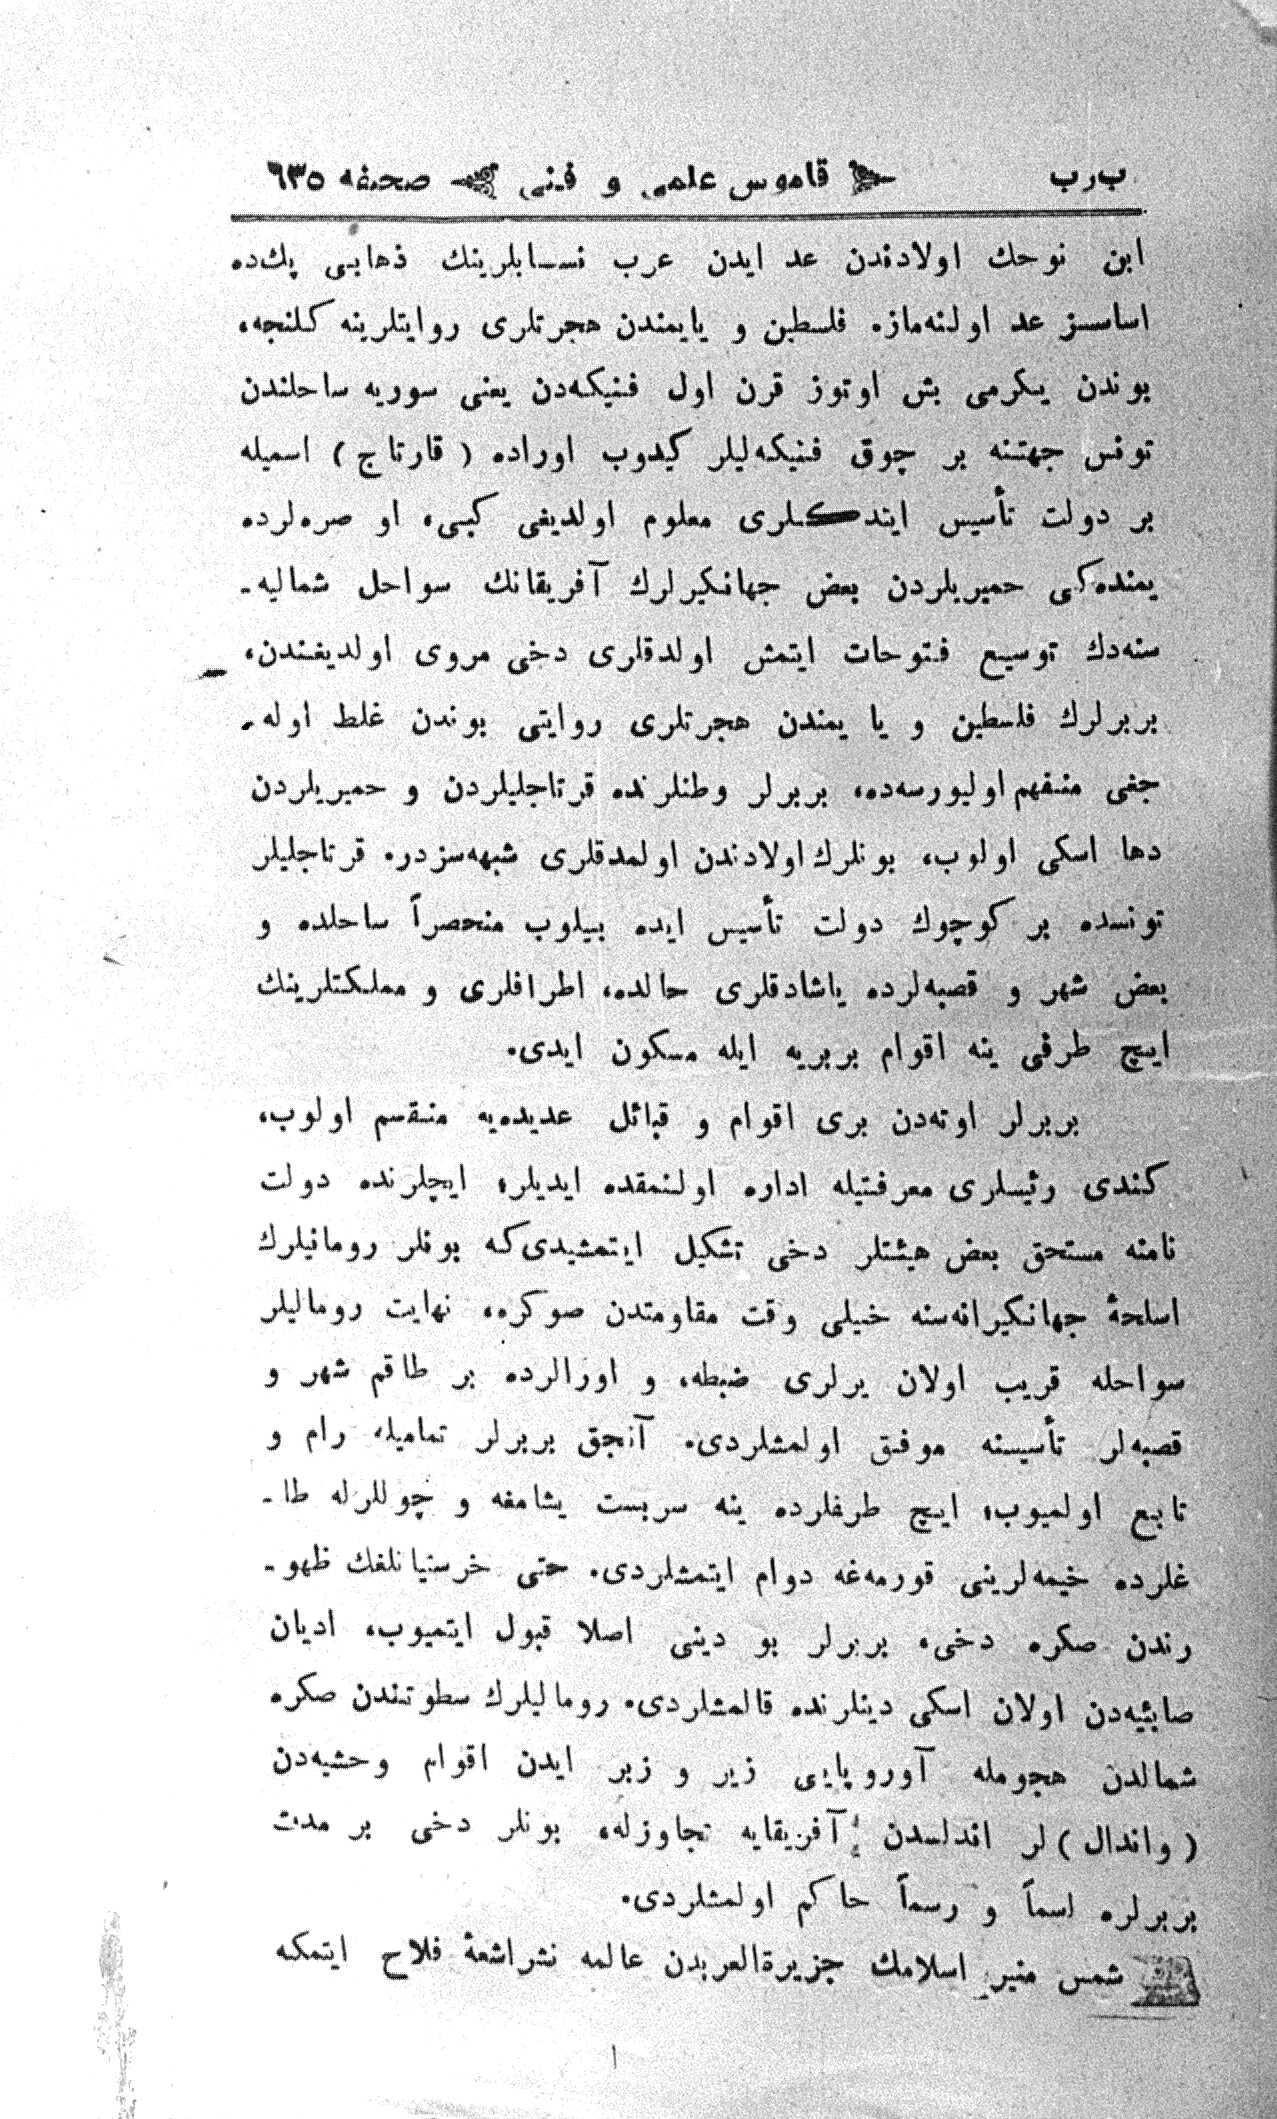 ب‌رب قاموس علمی و فنی صحیفه ٦٣٥
ابن نوحك اولادندن عد ایدن عرب نسابلرینك ذهابی پك‌ده
اساسسز عد اولنه‌ماز. فلسطین و یایمندن هجرتلری روایتلرینه کلنجه،
بوندن یکرمی بش اوتوز قرن اول فنیکه‌دن یعنی سوریه ساحلندن
تونس جهتنه بر چوق فنیکه‌لیلر کیدوب اوراده ( قارتاج ) اسمیله
بر دولت تأسیس ایتدکلری معلوم اولدیغی کبی، او صره‌لرده
یمنده‌کی حمیریلردن بعض جهانکیرلرك آفریقانك سواحل شمالیه-
سنه‌دك توسیع فتوحات ایتمش اولدقلری دخی مروی اولدیغندن،
بربرلرك فلسطین و یا یمندن هجرتلری روایتی بوندن غلط اوله-
جغی منفهم اولیورسه‌ده، بربرلر وطنلرنده قرتاجلیلردن و حمیریلردن
دها اسکی اولوب، بونلرك اولادندن اولمدقلری شبهه‌سزدر. قرتاجلیلر
تونسده بر کوچوك دولت تأسیس ایده بیلوب منحصراً ساحلده و
بعض شهر و قصبه‌لرده یاشادقلری حالده، اطرافلری و مملکتلرینك
ایچ طرفی ینه اقوام بربریه ایله مسکون ایدی.
بربرلر اوته‌دن بری اقوام و قبائل عدیده‌یه منقسم اولوب،
کندی رئیسلری معرفتیله اداره اولنمقده ایدیلر؛ ایچلرنده دولت
نامنه مستحق بعض هیئتلر دخی تشکیل ایتمشیدی‌که بونلر رومانیلرك
اسلحهٔ جهانکیرانه‌سنه خیلی وقت مقاومتدن صوکره، نهایت رومالیلر
سواحله قریب اولان یرلری ضبطه، و اورالرده بر طاقم شهر و
قصبه‌لر تأسیسنه موفق اولمشلردی. آنجق بربرلر تمامیله رام و
تابع اولمیوب؛ ایچ طرفلرده ینه سربست یشامغه و چوللرله طا-
غلرده خیمه‌لرینی قورمه‌غه دوام ایتمشلردی. حتی خرستیانلغك ظهو-
رندن صکره دخی، بربرلر بو دینی اصلا قبول ایتمیوب، ادیان
صابئیه‌دن اولان اسکی دینلرنده قالمشلردی. رومالیلرك سطوتندن صکره
شمالدن هجومله آوروپایی زیر و زبر ایدن اقوام وحشیه‌دن
( واندال ) لر اندلسدن آفریقایه تجاوزله، بونلر دخی بر مدت
بربرلره اسماً و رسماً حاکم اولمشلردی.
شمس منیر اسلامك جزیرةالعربدن عالمه نشراشعهٔ فلاح ایتمکه